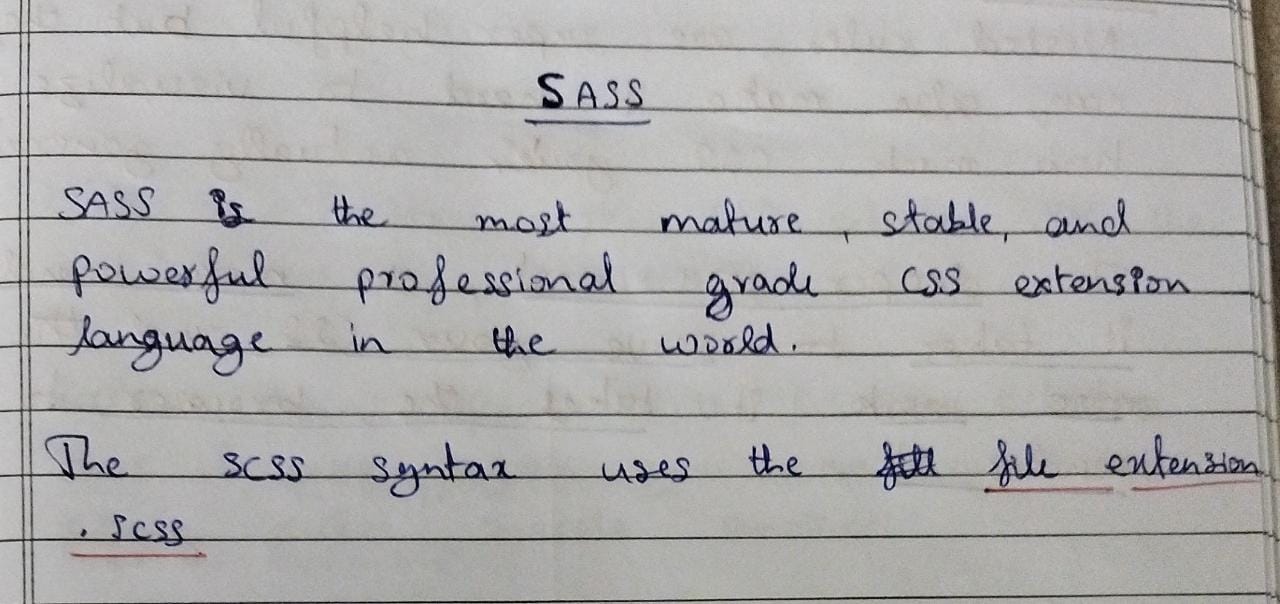 SASS
SASS is the most mature, stable, and
powerful professional grade CSS extension
language in the world.
The SCSS syntax uses the file extension
.scss